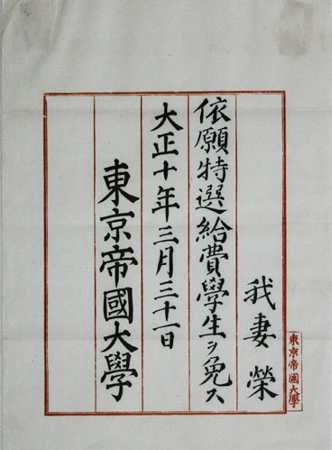 我妻榮
依願特選給費學生ヲ免ス
大正十年三月三十一日
東京帝國大學
東京帝國大學